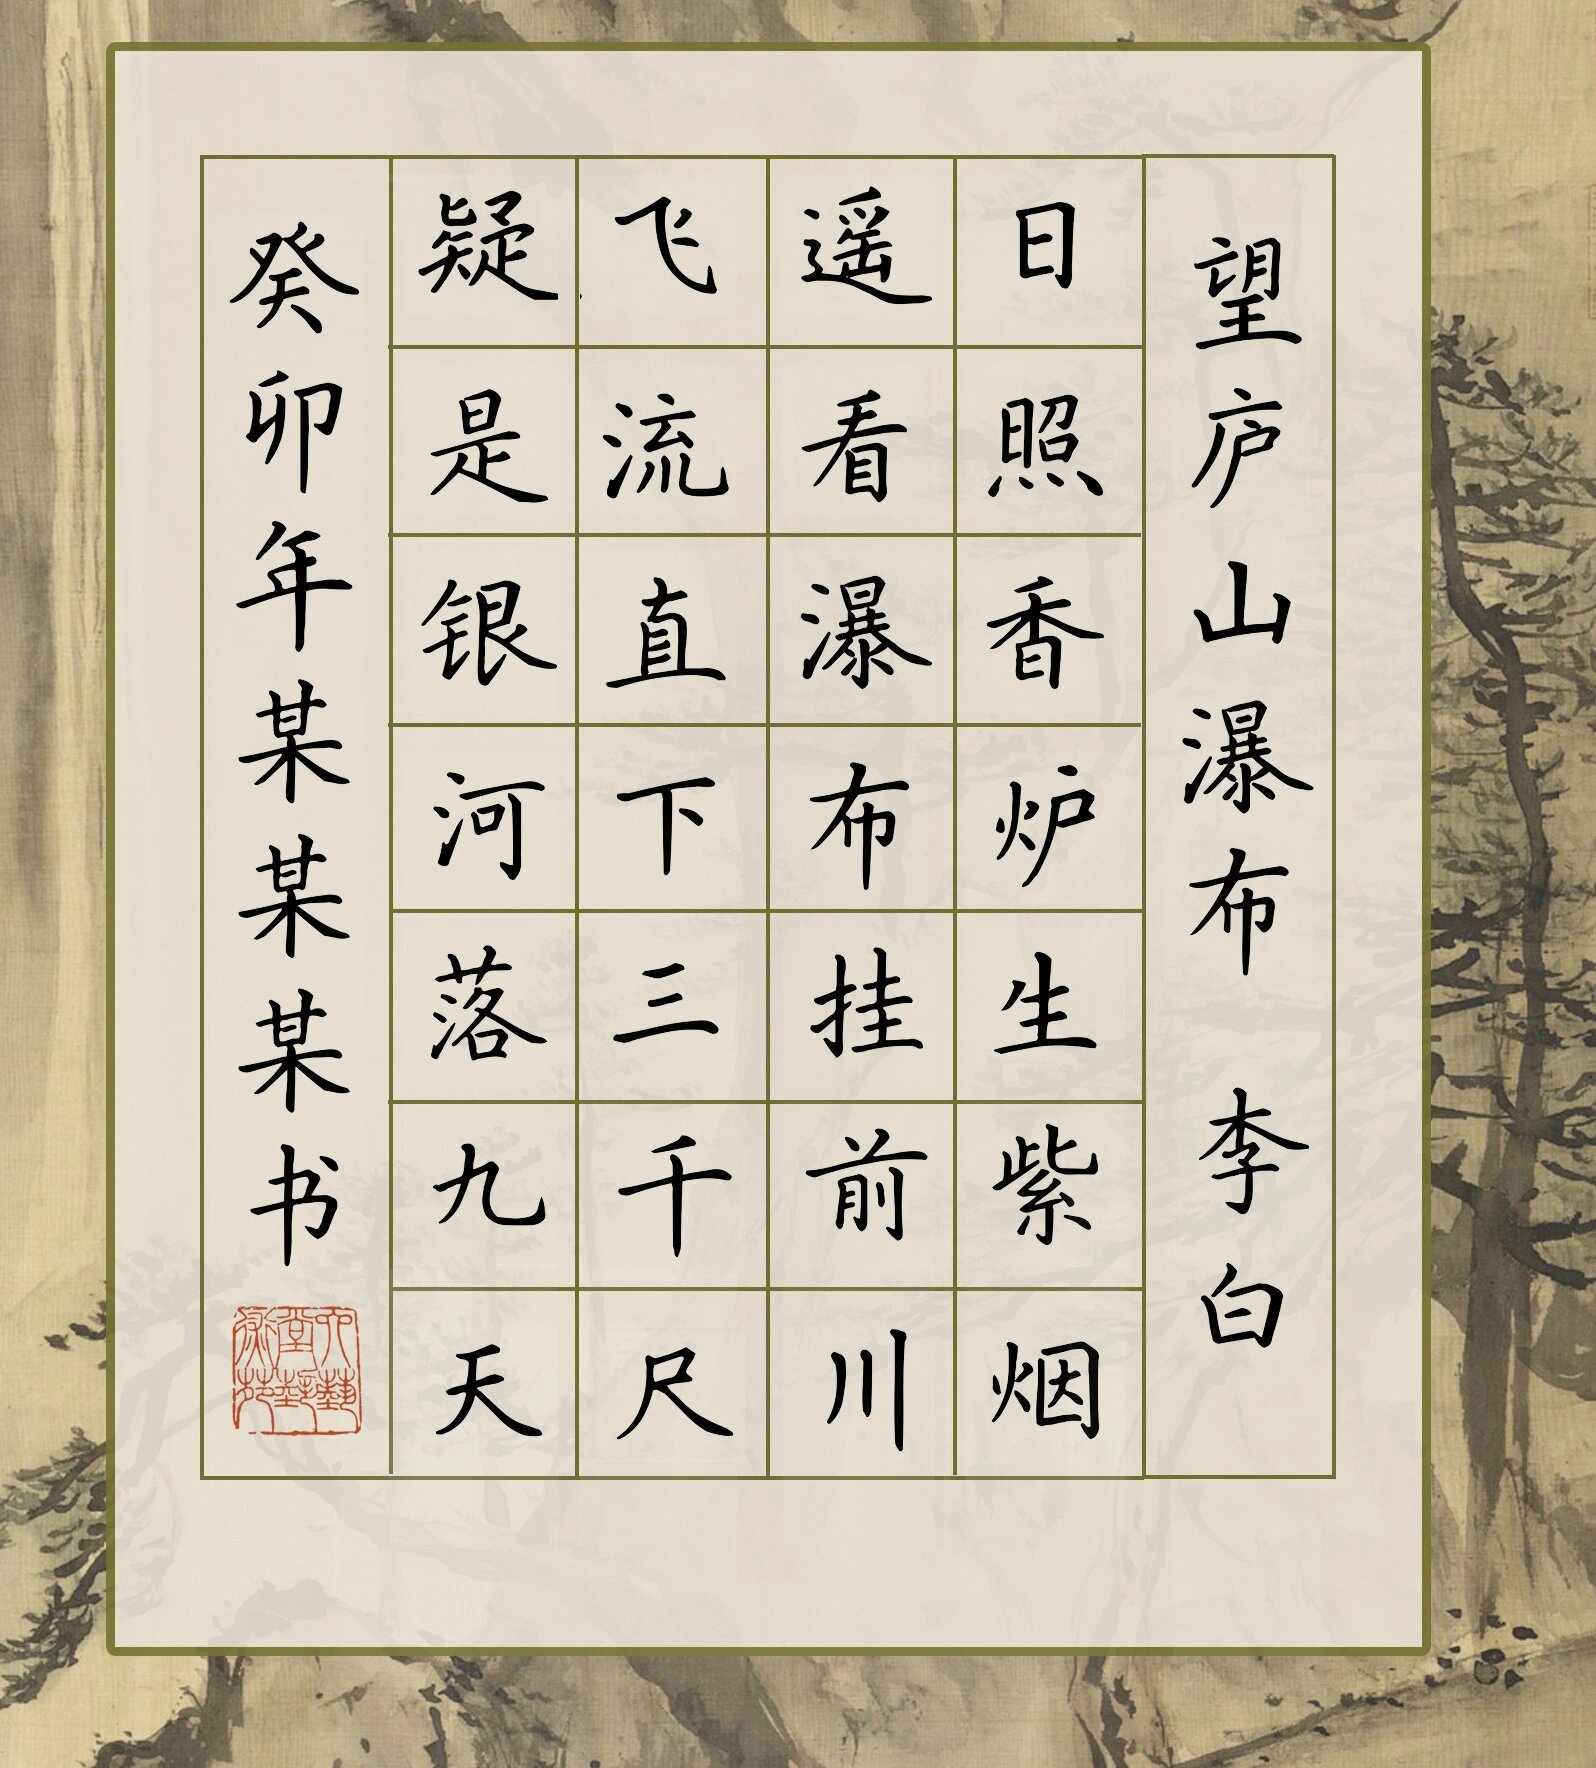 望庐山瀑布 李白
日照香炉生紫烟
遥看瀑布挂前川
飞流直下三千尺
疑是银河落九天
癸卯年某某某书